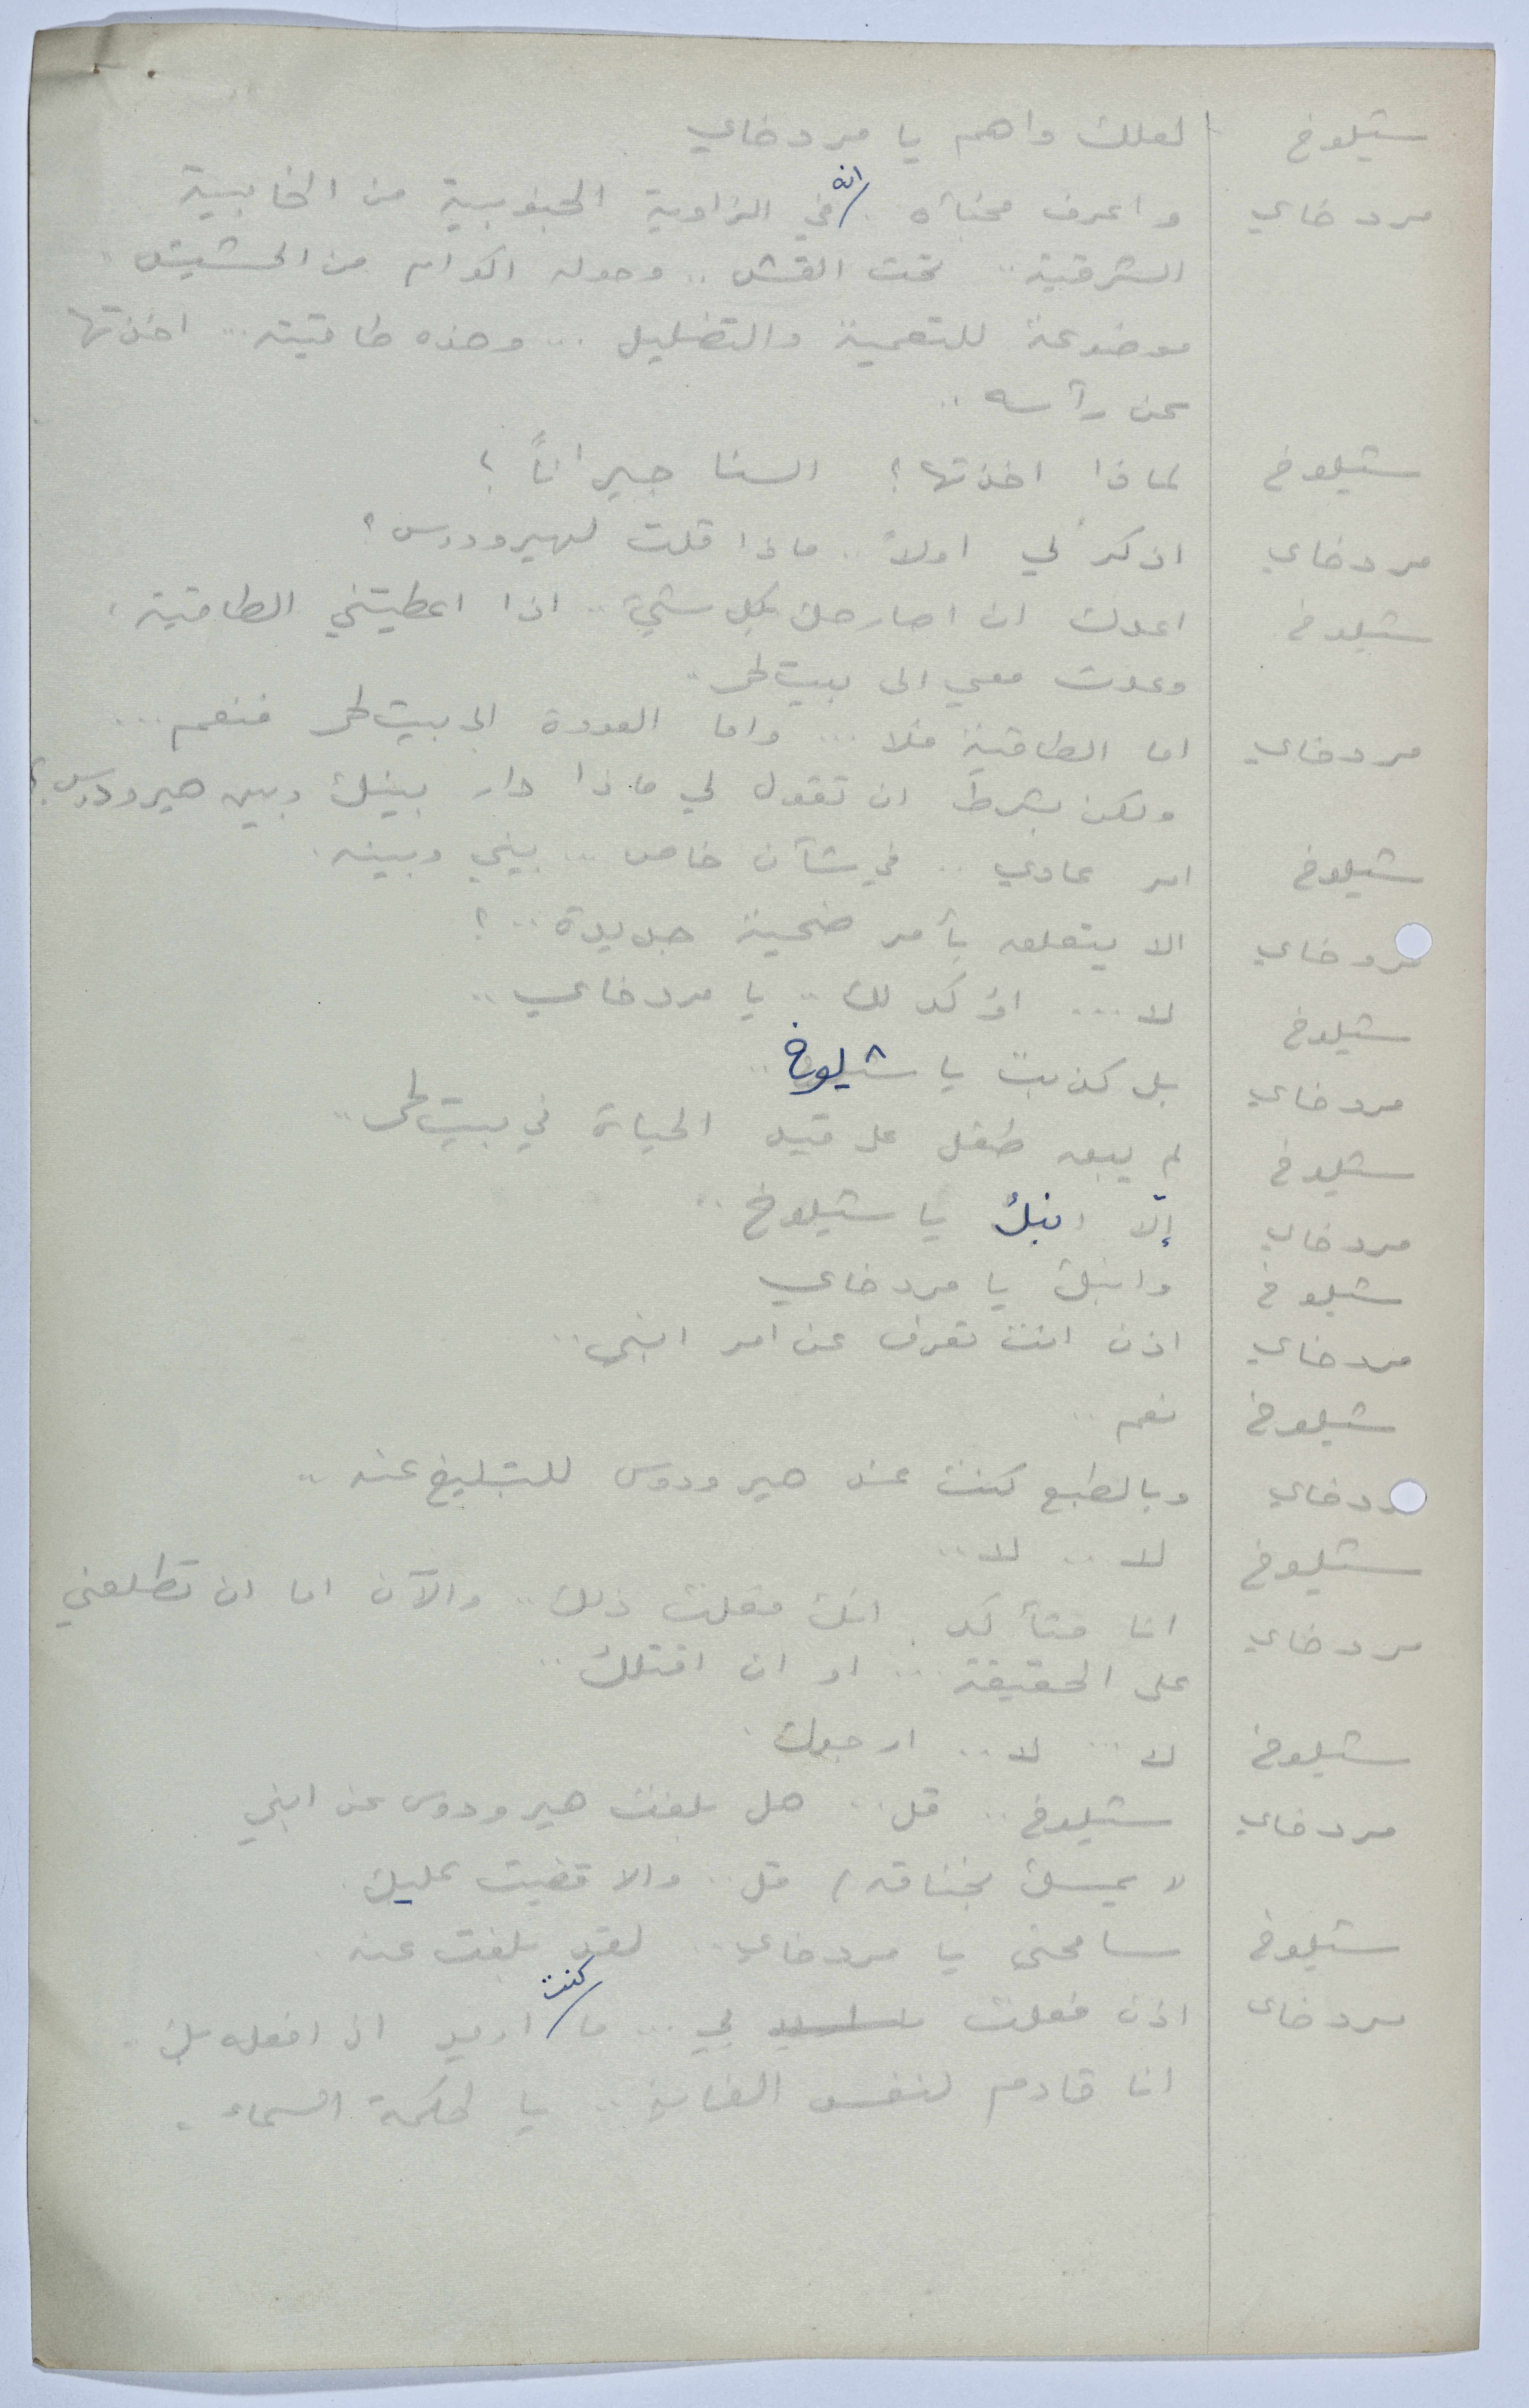 شيلوخ لعلك واهم يا مردخاي
مردخاي واعرف مخبأه .. انه في الزاوية الجنوبية من الخابية
الشرقية .. تحت القش .. وحوله اكوام من الحشيش .
موضوعة للتعمية والتضليل ... وهذه طاقيته ... اخذتها
عن رأسه ..
شيلوخ لماذا اخذتها ؟ السنا جيراناً ؟
مردخاي اذكر لي اولاً .. ماذا قلت لهيرودوس ؟
شيلوخ اعدك ان اصارحك بكل شيء .. اذا اعطيتني الطاقية ،
وعدت معي الى بيت لحم ..
مردخاي اما الطاقية فلا ... واما العودة الى بيت لحم فنعم ...
ولكن بشرط ان تقول لي ماذا دار بينك وبين هيرودوس ؟
شيلوخ امر عادي .. في شأن خاص ... بيني وبينه .
مردخاي الا يتعلق بأمر ضحية جديدة .. ؟
شيلوخ لا ... اؤكد لك .. يا مردخاي ..
مردخاي بل كذبت يا شيلوخ ..
شيلوخ لم يبق طفل على قيد الحياة في بيت لحم ..
مردخاي إلّا ابنك يا شيلوخ ..
شيلوخ وابنك يا مردخاي
مردخاي اذن انت تعرف عن امر ابني ..
شيلوخ نعم ..
مردخاي وبالطبع كنت عند هيرودوس للتبليغ عنه ..
شيلوخ لا .. لا ..
مردخاي انا متأكد انك فعلت ذلك .. والآن اما ان تطلعني
على الحقيقة ... او ان اقتلك ..
شيلوخ لا ... لا .. ارجوك .
مردخاي شيلوخ .. قل .. هل بلغت هيرودوس عن ابني
( يمسك بخناقه ) قل .. والا قضيت عليك .
شيلوخ سامحني يا مردخاي .. لقد بلغت عنه .
مردخاي اذن فعلت بي ... ما كنت اريد ان افعله بك ..
انا قادم لنفس الغاية .. يا لحكمة السماء .